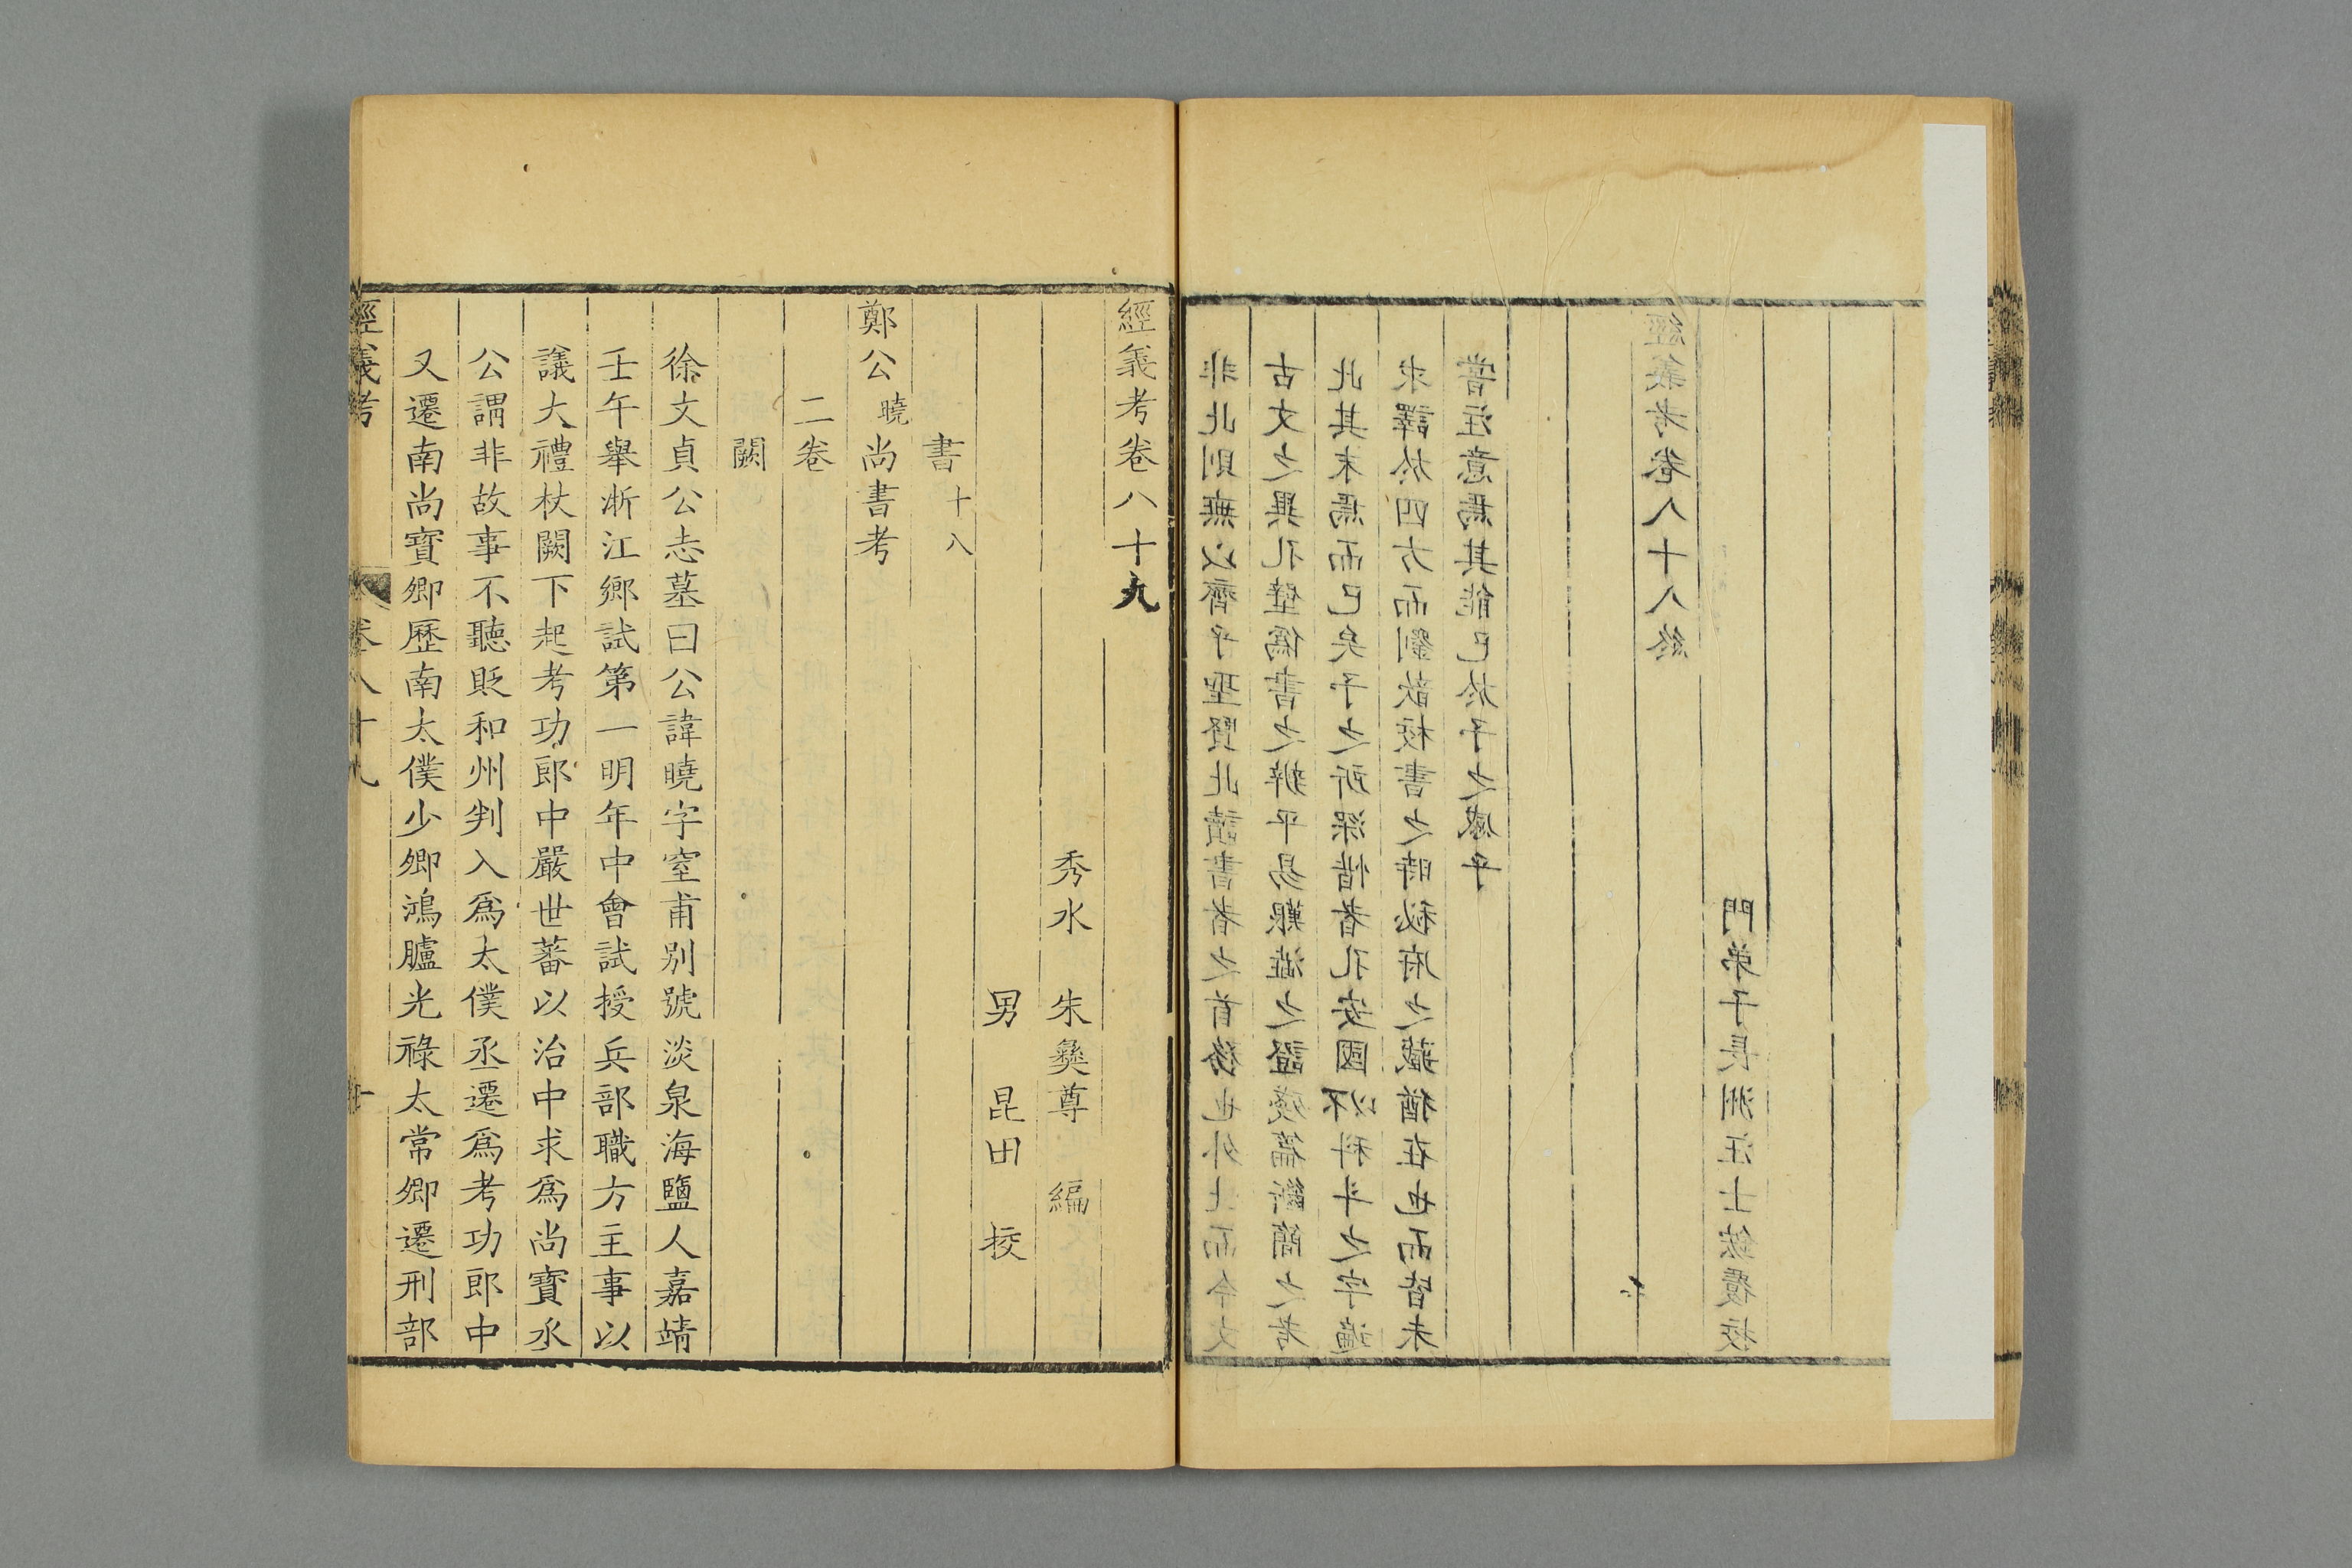 非此則無以齊乎聖賢此讀書者之首務也外此而今文
古文之異孔壁偽書之辨平易艱澁之證殘篇斷簡之考
此其末焉而已矣予之所深惜者孔安國不以科斗之字遍
求譯於四方而劉歆校書之時秘府之藏猶在也而皆未
嘗注意焉其能已於予之感乎
經義考卷八十八終
門弟子長洲汪士鋐覆校
經義考卷八十九
秀水 朱彝尊 編
男 昆田 挍
書十八
鄭公曉尚書考
二卷
闕
徐文貞公志墓曰公諱曉字窒甫别號淡泉海鹽人嘉靖
壬午舉浙江鄉試第一明年中會試授兵部職方主事以
議大禮杖闕下起考功郎中嚴世蕃以治中求爲尚寳丞
公謂非故事不聽貶和州判入爲太僕丞遷爲考功郎中
又遷南尚寳卿歷南太僕少卿鴻臚光祿太常卿遷刑部
經義考 卷八十九